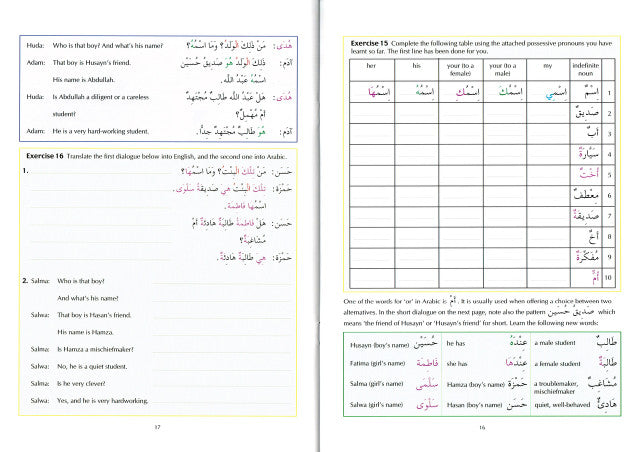 Exercise 15 Complete the following table using the attached possessive pronouns you have
learnt so far. The first line has been done for you.
her his your (to a female) your (to a male) my indefinite noun
1 اِسْمٌ اِسْمِي اِسْمُكَ اِسْمُكِ اِسْمُهُ اِسْمُهَا
2 صَدِيقٌ
3 أَبٌ
4 سَيَّارَةٌ
5 أُخْتٌ
6 مِعْطَفٌ
7 صَدِيقَةٌ
8 أَخٌ
9 مُفَكِّرَةٌ
10 أُمٌّ
One of the words for 'or' in Arabic is أَمْ. It is usually used when offering a choice between two
alternatives. In the short dialogue on the next page, note also the pattern صَدِيقُ حُسَيْنٍ which
means 'the friend of Husayn' or 'Husayn's friend' for short. Learn the following new words:
Husayn (boy's name) حُسَيْن he has عِنْدَهُ a male student طَالِبٌ
Fatima (girl's name) فَاطِمَة she has عِنْدَهَا a female student طَالِبَةٌ
Salma (girl's name) سَلْمَى Hamza (boy's name) حَمْزَة a troublemaker, mischiefmaker مُشَاغِبٌ
Salwa (girl's name) سَلْوَى Hasan (boy's name) حَسَن quiet, well-behaved هَادِئٌ
16
Huda: Who is that boy? And what's his name? هُدَى: مَنْ ذٰلِكَ الْوَلَدُ؟ وَمَا اسْمُهُ؟
Adam: That boy is Husayn's friend. آدَم: ذٰلِكَ الْوَلَدُ هُوَ صَدِيقُ حُسَيْنٍ
His name is Abdullah. اِسْمُهُ عَبْدُ اللّٰه.
Huda: Is Abdullah a diligent or a careless هُدَى: هَلْ عَبْدُ اللّٰه طَالِبٌ مُجْتَهِدٌ
student? أَمْ مُهْمِلٌ؟
Adam: He is a very hard-working student. آدَم: هُوَ طَالِبٌ مُجْتَهِدٌ جِدًّا.
Exercise 16 Translate the first dialogue below into English, and the second one into Arabic.
1. حَسَن: مَن تِلْكَ الْبِنْتُ؟ وَمَا اسْمُهَا؟
حَمْزَة: تِلْكَ الْبِنْتُ هِيَ صَدِيقَةُ سَلْوَى.
اِسْمُهَا فَاطِمَة.
حَسَن: هَلْ فَاطِمَةُ طَالِبَةٌ هَادِئَةٌ أَمْ
مُشَاغِبَةٌ؟
حَمْزَة: هِيَ طَالِبَةٌ هَادِئَةٌ.
2. Salma: Who is that boy?
And what's his name?
Salwa: That boy is Hasan's friend.
His name is Hamza.
Salma: Is Hamza a mischiefmaker?
Salwa: No, he is a quiet student.
Salma: Is he very clever?
Salwa: Yes, and he is very hardworking.
17